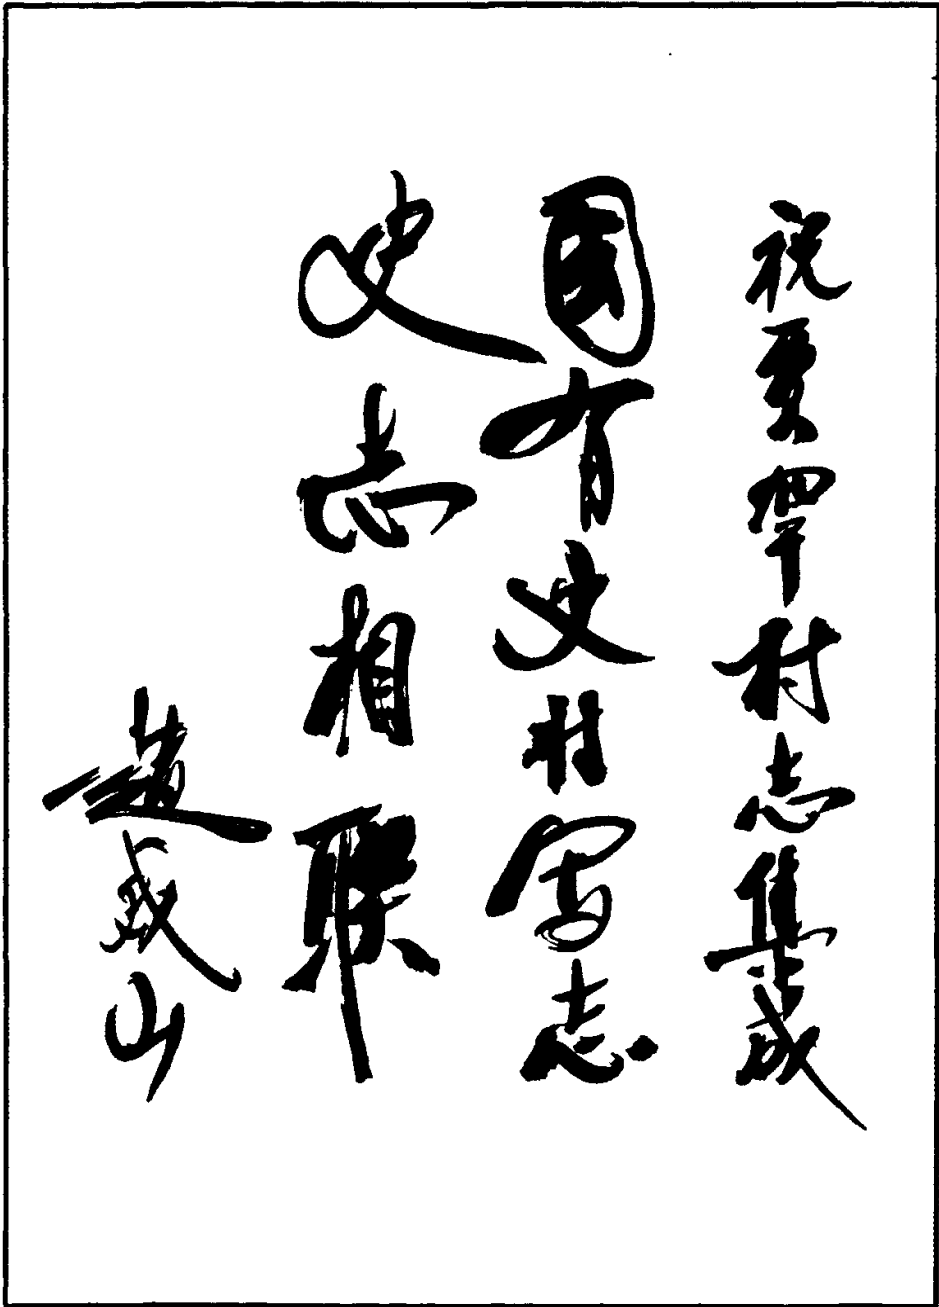 祝贾罕村志集成
國有史村写志
史志相联
赵成山